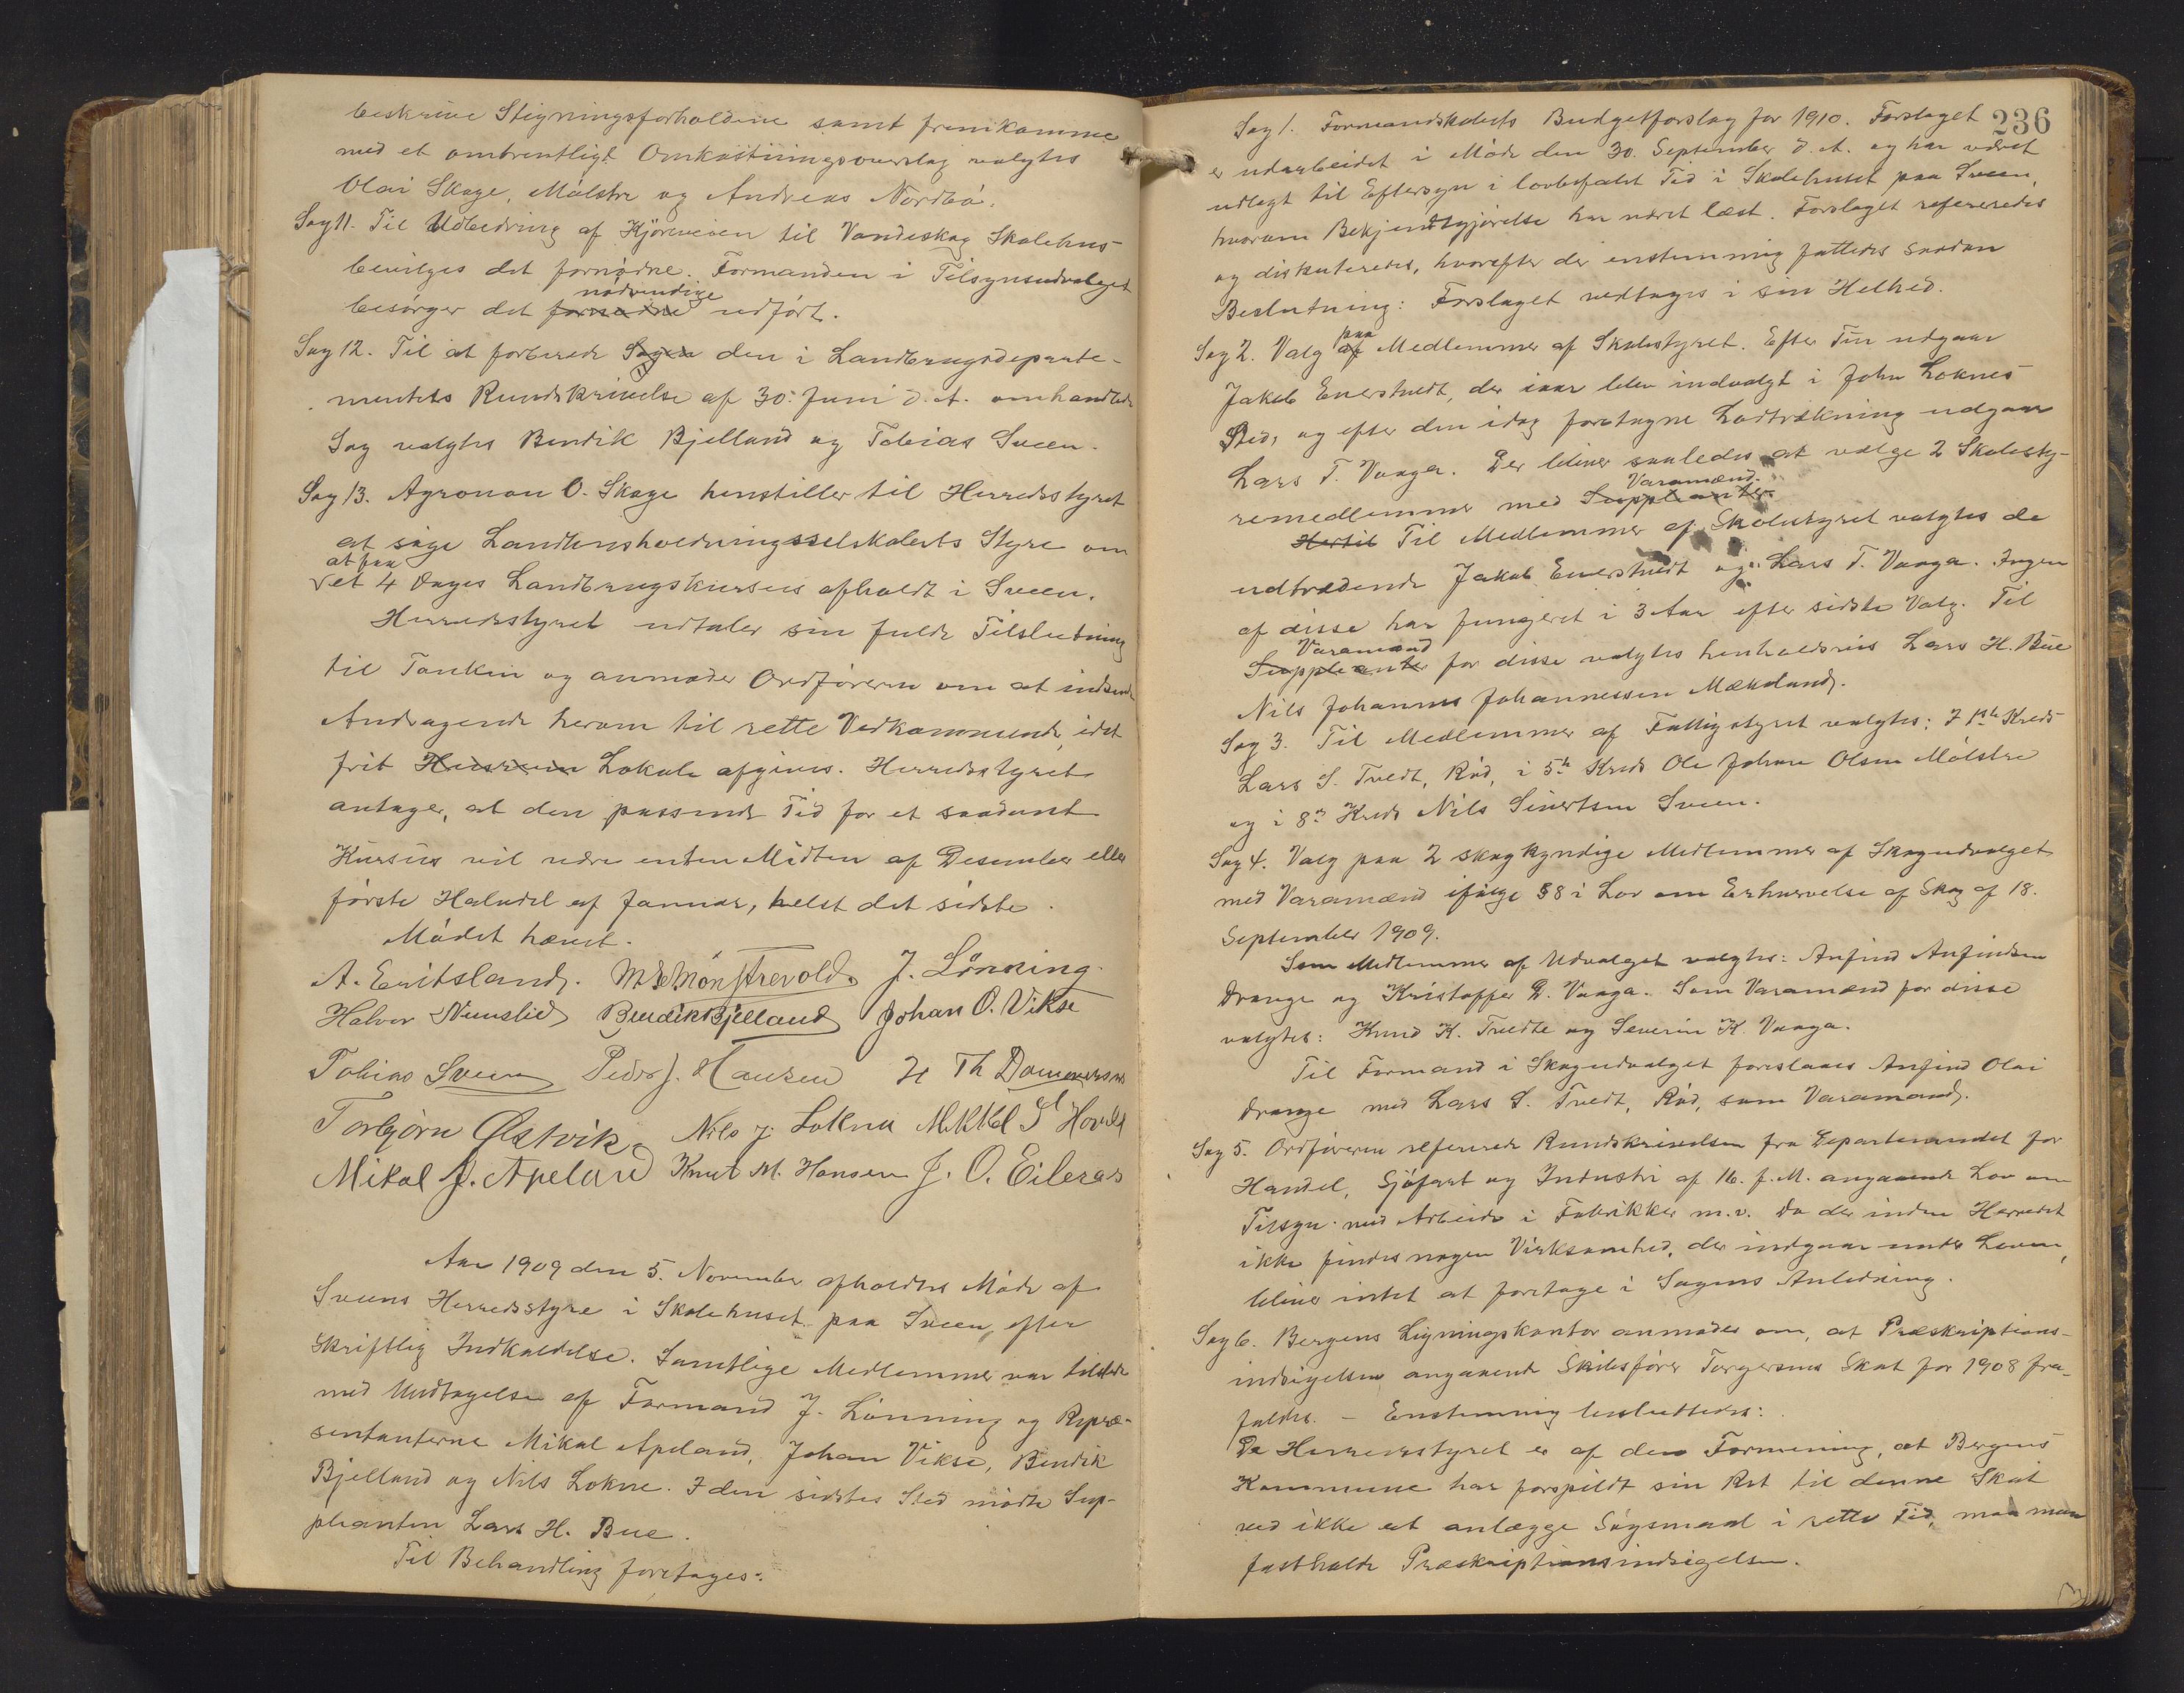 beskrive Stigningsforholdene samt fremkomme
med et omtrentligt Omkostningsoverslag valgtes
Olai Skage, Mølstre og Andreas Nordbø.
Sag 11. Til Udbedring af Kjøreveien til Vandeskog Skolehus
bevilges det fornødne. Formanden i Tilsynsudvalget
besørger det fornødne nødvendige udført.
Sag 12. Til at forberede Sagen den i Landbrugsdeparte-
mentets Rundskrivelse af 30. Juni d. A. omhandlede
Sag valgtes Bendik Bjelland og Tobias Sveen.
Sag 13. Agronom O. Skage henstiller til Herredsstyret
at søge Landhusholdningsselskabets Styre om
at faa
et 4 Dages Landbrugskursus afholdt i Sveen.
Herredsstyret udtaler sin fulde Tilslutning
til Tanken og anmoder Ordføreren om at indsende
Andragende herom til rette Vedkommende, idet
frit Husrum Lokale afgives. Herredsstyret
antager, at den passende Tid for et saadant
Kursus vil være enten Midten af Desember eller
første Halvdel af Januar, helst det sidste.
Mødet hævet.
A. Emitsland. M S Mønstrevold. J. Lønning.
Halvor Nernslied Bendik Bjelland Johan O. Vikse
Tobias Sveen Peder J. Hansen H Th Dommersnes
Torbjørn Østvik Nils J. Lokna Mikkel S Hovda
Mikal J. Apeland Knut M. Hansen J. O. Eileraas
Aar 1909 den 5. November afholdtes Møde af
Sveens Herredsstyre i Skolehuset paa Sveen efter
skriftlig Indkaldelse. Samtlige Medlemmer var tilstede
med Undtagelse af Formand J. Lønning og Repræ-
sentanterne Mikal Apeland, Johan Vikse, Bendik
Bjelland og Nils Lokne. I den sidstes Sted mødte Sup-
pleanten Lars H. Bue.
Til Behandling foretages:
236
Sag 1. Formandskabets Budgetforslag for 1910. Forslaget
er udarbeidet i Møde den 30. September d. A. og har været
udlagt til Eftersyn i lovbefalet Tid i Skolehuset paa Sveen,
hvorom Bekjendtgjørelse har været læst. Forslaget refereredes
og diskuteredes, hvorefter der enstemmig fattedes saadan
Beslutning: Forslaget vedtages i sin Helhed.
Sag 2. Valg af paa Medlemmer af Skolestyret. Efter Tur udgaar
Jakob Enerstvedt, der iaar blev indvalgt i John Loknes
Sted, og efter den idag foretagne Lodtrækning udgaar
Lars T. Vaaga. Der bliver saaledes at vælge 2 Skolesty-
remedlemmer med Suppleanter Varamænd.
Hertil Til Medlemmer af Skolestyret valgtes de
udtrædende Jakob Enerstvedt og Lars T. Vaaga. Ingen
af disse har fungeret i 3 Aar efter sidste Valg. Til
Suppleanter Varamænd for disse valgtes henholdsvis Lars H. Bue
Nils Johannes Johannessen Mækeland.
Sag 3. Til Medlemmer af Fattigstyret valgtes: I 1ste Kreds
Lars S. Tvedt, Rød, i 5te Kreds Ole Johan Olsen Mølstre
og i 8de Kreds Nils Sivertsen Sveen.
Sag 4. Valg paa 2 skogkyndige Medlemmer af Skogudvalget
med Varamænd ifølge §8 i Lov om Erhvervelse af Skog af 18.
September 1909.
Som Medlemmer af Udvalget valgtes: Anfind Anfindsen
Drange og Kristoffer D. Vaaga. Som Varamænd for disse
valgtes: Knud K. Tvedte og Severin K. Vaaga.
Til Formand i Skogudvalget foreslaaes Anfind Olai
Drange med Lars S. Tvedt, Rød, som Varamand.
Sag 5. Ordføreren refererede Rundskrivelsen fra Departementet for
Handel, Sjøfart og Industri af 16. f. M. angaaende Lov om
Tilsyn med Arbeide i Fabrikker m.v. Da der inden Herredet
ikke findes nogen Virksomhed, der indgaar under Loven,
bliver intet at foretage i Sagens Anledning.
Sag 6. Bergens Ligningskontor anmoder om, at Præskriptions-
indsigelsen angaaende Skibsfører Torgersens Skat for 1908 fra-
faldes. - Enstemmig besluttedes:
Da Herredsstyret er af den Formening, at Bergens
Kommune har forspildt sin Ret til denne Skat
ved ikke at anlægge Søgsmaal i rette Tid, maa man
fastholde Præskriptionsindsigelsen.